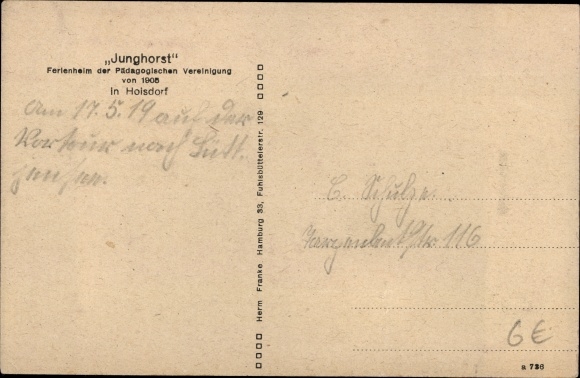 „Junghorst“
Ferienheim der Pädagogischen Vereinigung
von 1905
in Hoisdorf
Am 17.5.19 auf der
nach Lütt
C. Schulze.
116
Herm Franke. Hamburg 33, Fuhlsbüttelerstr. 129
6€
a 736